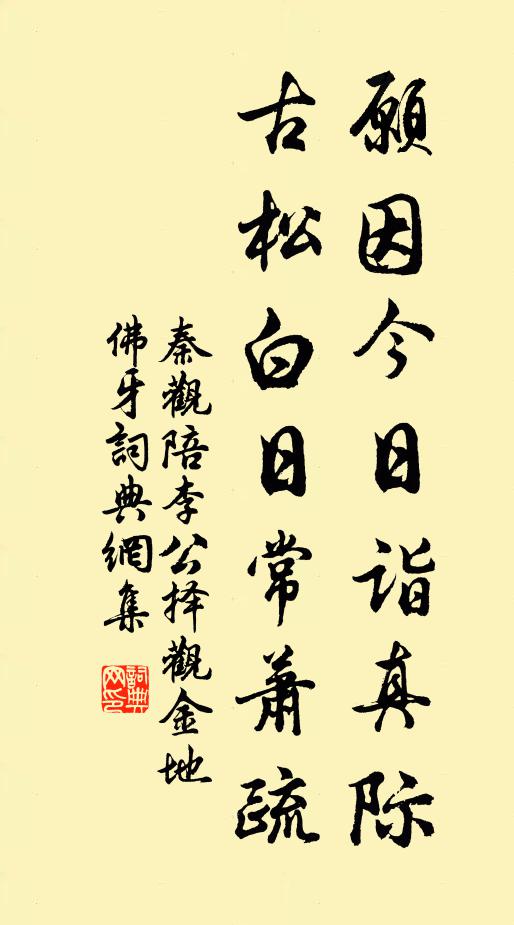 願因今日詣真际
古松白日常蕭疏
秦觀陪李公择觀金地
佛牙詞典網集
詞典网印